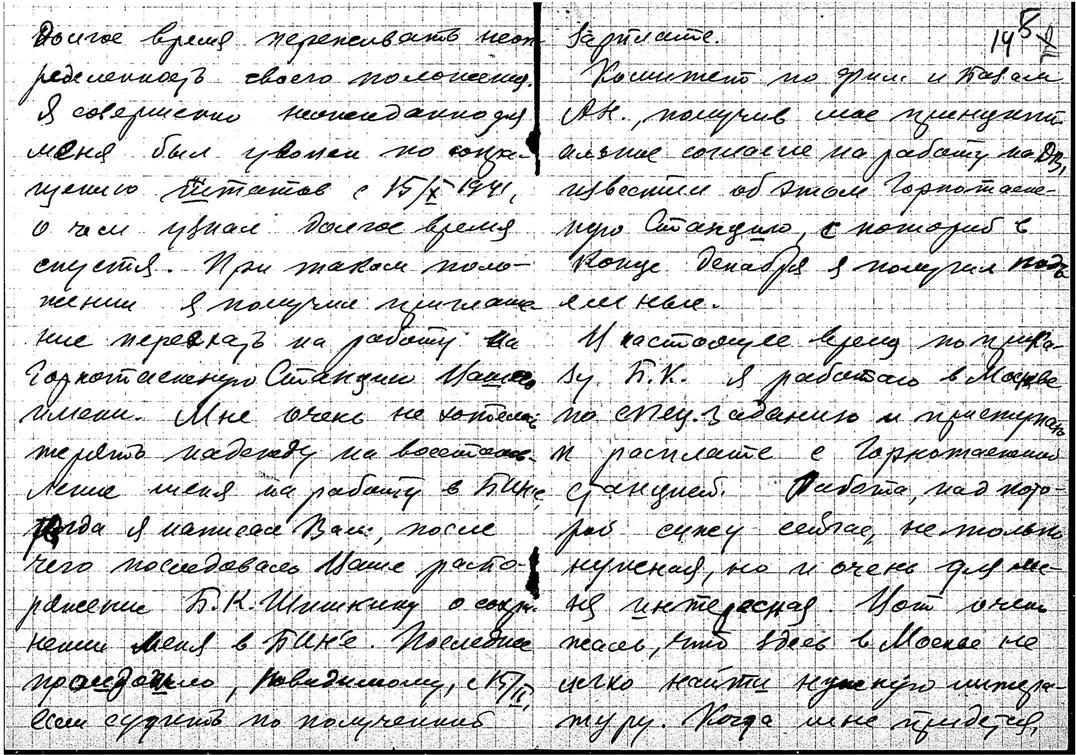 Долгое время переживать неоп-
ределенность своего положения.
Я совершенно неожиданно для
меня был уволен по сокра-
щению штатов с 15/X 1941,
о чем узнал долгое время
спустя. При таком поло-
жении я получил приглаше-
ние переехать на работу на
Горнотаежную Станцию Вашего
имени. Мне очень не хотелось
терять надежду на восстанов-
ление меня на работу в БИНе,
тогда я написал Вам, после
чего последовало Ваше распо-
ряжение Б.К. Шишкину о сохра-
нении меня в БИН'е. Последнее
произошло, по-видимому, с 15/II,
если судить по полученной
зарплате.
Комитет по фил. и базам
АН., получив мое принципи-
альное согласие на работу на ДВ,
известил об этом Горнотаеж-
ную Станцию, с которой в
конце декабря я получил подъ-
емные.
В настоящее время по прика-
зу Б.К. я работаю в Москве
по спец. заданию и приступаю
к расплате с Горнотаежной
станцией. Работа, над кото-
рой сижу сейчас, не только
нужная, но и очень для ме-
ня интересная. Вот очень
жаль, что здесь в Москве не
легко найти нужную литера-
туру. Когда мне придется,